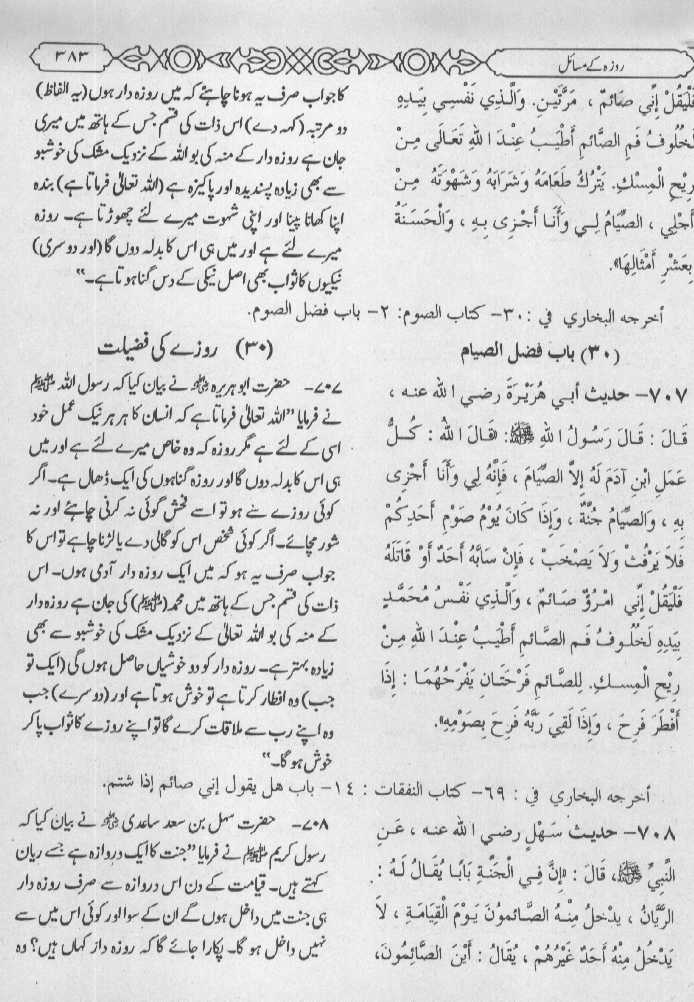 روزہ کے مسائل
۳۸۳
فَلْيَقُلْ إِنِّي صَائِمٌ ، مَرَّتَيْنِ. وَالَّذِي نَفْسِي بِيَدِهِ
لَخُلُوفُ فَمِ الصَّائِمِ أَطْيَبُ عِنْدَ اللهِ تَعَالَى مِنْ
رِيْحِ الْمِسْكِ. يَتْرُكُ طَعَامَهُ وَشَرَابَهُ وَشَهْوَتَهُ مِنْ
أَجْلِي ، الصِّيَامُ لِي وَأَنَا أَجْزِى بِهِ ، وَالْحَسَنَةُ
بِعَشْرِ أَمْثَالِهَا».
کا جواب صرف یہ ہونا چاہئے کہ میں روزہ دار ہوں (یہ الفاظ)
دو مرتبہ (کہہ دے) اس ذات کی قسم جس کے ہاتھ میں میری
جان ہے روزہ دار کے منہ کی بو اللہ کے نزدیک مشک کی خوشبو
سے بھی زیادہ پسندیدہ اور پاکیزہ ہے (اللہ تعالیٰ فرماتا ہے) بندہ
اپنا کھانا پینا اور اپنی شہوت میرے لئے چھوڑتا ہے۔ روزہ
میرے لئے ہے اور میں ہی اس کا بدلہ دوں گا (اور دوسری)
نیکیوں کا ثواب بھی اصل نیکی کے دس گنا ہوتا ہے۔“
أخرجه البخاري في : ٣٠- كتاب الصوم: ٢- باب فضل الصوم.
(٣٠) باب فضل الصيام
(۳۰) روزے کی فضیلت
٧٠٧- حديث أَبِي هُرَيْرَةَ رضي الله عنه ،
قَالَ : قَالَ رَسُولُ اللهِ ﷺ: «قَالَ اللهُ : كُلُّ
عَمَلِ ابْنِ آدَمَ لَهُ إِلاَّ الصِّيَامَ ، فَإِنَّهُ لِي وَأَنَا أَجْزِى
بِهِ ، وَالصِّيَامُ جُنَّةٌ ، وَإِذَا كَانَ يَوْمُ صَوْمِ أَحَدِكُمْ
فَلاَ يَرْفُثْ وَلاَ يَصْخَبْ ، فَإِنْ سَابَّهُ أَحَدٌ أَوْ قَاتَلَهُ
فَلْيَقُلْ إِنِّي امْرُؤٌ صَائِمٌ ، وَالَّذِي نَفْسُ مُحَمَّدٍ
بِيَدِهِ لَخُلُوفُ فَمِ الصَّائِمِ أَطْيَبُ عِنْدَ اللهِ مِنْ
رِيْحِ الْمِسْكِ. لِلصَّائِمِ فَرْحَتَانِ يَفْرَحُهُمَا : إِذَا
أَفْطَرَ فَرِحَ ، وَإِذَا لَقِيَ رَبَّهُ فَرِحَ بِصَوْمِهِ».
۷۰۷- حضرت ابو ہریرہ ؓ نے بیان کیا کہ رسول اللہ ﷺ
نے فرمایا ”اللہ تعالیٰ فرماتا ہے کہ انسان کا ہر نیک عمل خود
اسی کے لئے ہے مگر روزہ کہ وہ خاص میرے لئے ہے اور میں
ہی اس کا بدلہ دوں گا اور روزہ گناہوں کی ایک ڈھال ہے۔ اگر
کوئی روزے سے ہو تو اسے فحش گوئی نہ کرنی چاہئے اور نہ
شور مچائے۔ اگر کوئی شخص اس کو گالی دے یا لڑنا چاہے تو اس کا
جواب صرف یہ ہو کہ میں ایک روزہ دار آدمی ہوں۔ اس
ذات کی قسم جس کے ہاتھ میں محمد (ﷺ) کی جان ہے روزہ دار
کے منہ کی بو اللہ تعالیٰ کے نزدیک مشک کی خوشبو سے بھی
زیادہ بہتر ہے۔ روزہ دار کو دو خوشیاں حاصل ہوں گی (ایک تو
جب) وہ افطار کرتا ہے تو خوش ہوتا ہے اور (دوسرے) جب
وہ اپنے رب سے ملاقات کرے گا تو اپنے روزے کا ثواب پا کر
خوش ہو گا۔“
أخرجه البخاري في : ٦٩- كتاب النفقات : ١٤- باب هل يقول إني صائم إذا شتم.
٧٠٨- حديث سَهْلٍ رضي الله عنه ، عَنِ
النَّبِيِّ ﷺ، قَالَ : «إِنَّ فِي الْجَنَّةِ بَابًا يُقَالُ لَهُ :
الرَّيَّانُ ، يدْخلُ مِنْهُ الصَّائموْنَ يَوْمَ الْقِيَامَةِ ، لاَ
يَدْخُلُ مِنْهُ أَحَدٌ غَيْرُهُمْ ، يُقَالُ : أَيْنَ الصَّائِمُونَ،
۷۰۸- حضرت سہل بن سعد ساعدی ؓ نے بیان کیا کہ
رسول کریم ﷺ نے فرمایا ”جنت کا ایک دروازہ ہے جسے ریان
کہتے ہیں۔ قیامت کے دن اس دروازہ سے صرف روزہ دار
ہی جنت میں داخل ہوں گے ان کے سوا اور کوئی اس میں سے
نہیں داخل ہو گا۔ پکارا جائے گا کہ روزہ دار کہاں ہیں؟ وہ